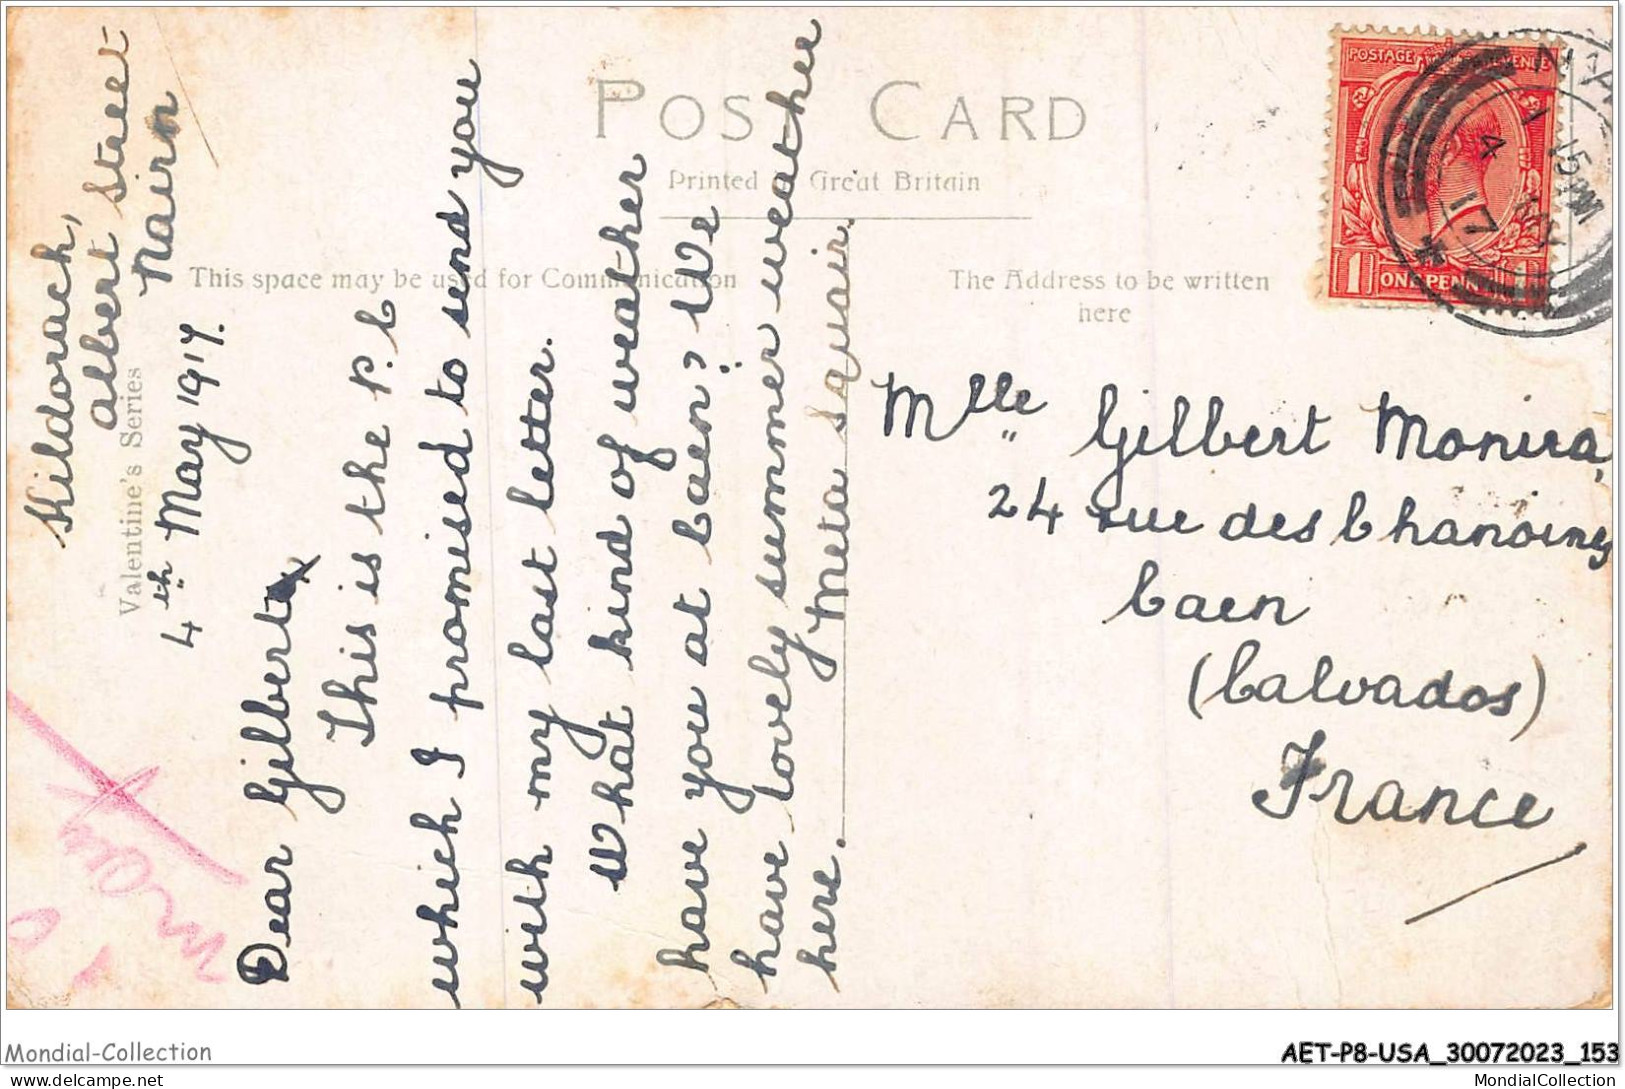 Kildorach,
Albert Street
Nairn
4th May 1917.
Dear Gilbert
This is the P.C
which I promised to send you
with my last letter.
What kind of weather
have you at Caen? We
have lovely summer weather
here. Meta Squair.
POST CARD
Printed Great Britain
This space may be used for Communication
The Address to be written
here
Valentine's Series
POSTAGE REVENUE
1 ONE PENNY
4 17
Mlle Gilbert
24 rue des Chanoines
Caen
(Calvados)
France
Mondial-Collection
AET-P8-USA_30072023_153
delcampe.net
MondialCollection